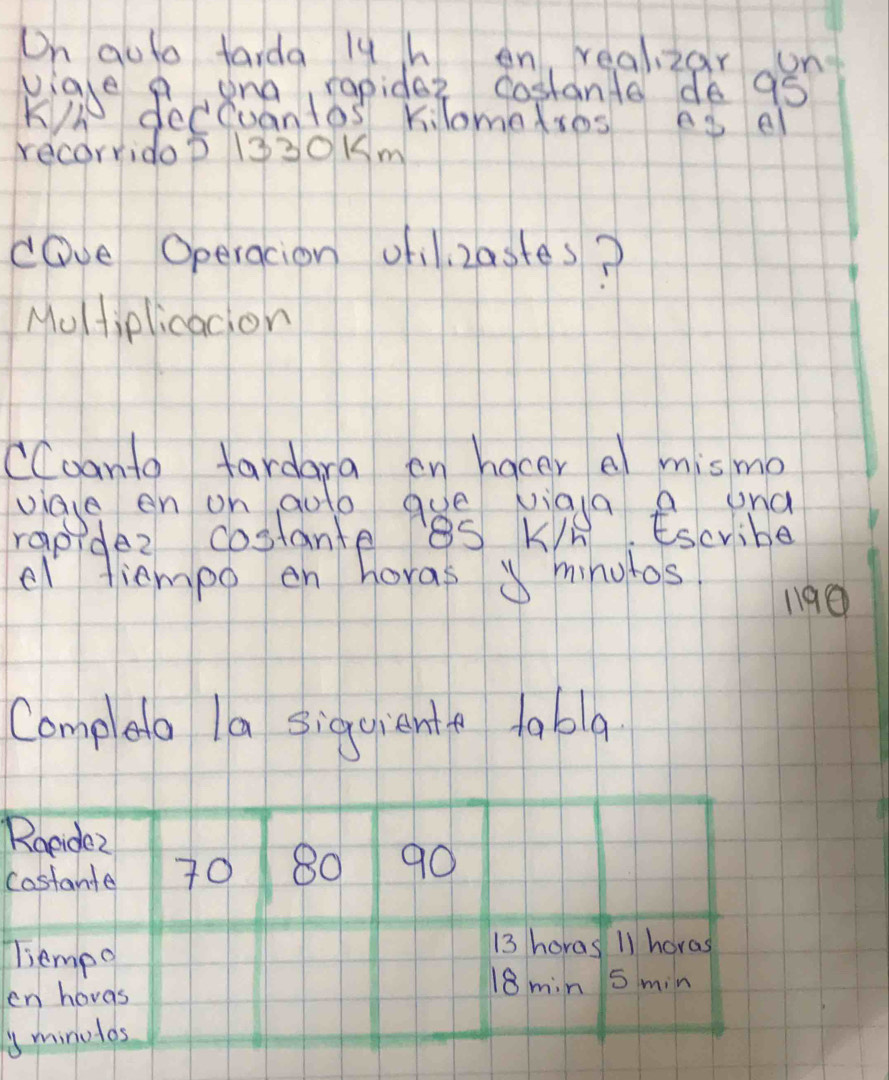 Un auto tarda 14 h en realizar un
viaje a una rapidez costante de 95
K/h de ¿Cuantos Kilometros es el
recorrido? 1330 Km
¿Que Operacion utilizastes?
Multiplicacion
¿Cuanto tardara en hacer el mismo
viaje en un auto que viaja a una
rapidez costante 85 K/h. Escribe
el tiempo en horas y minutos.
1190
Completa la siguiente tabla.
Rapidez
costante
70 80 90
Tiempo
en horas
y minutos
13 horas
18 min
11 horas
5 min